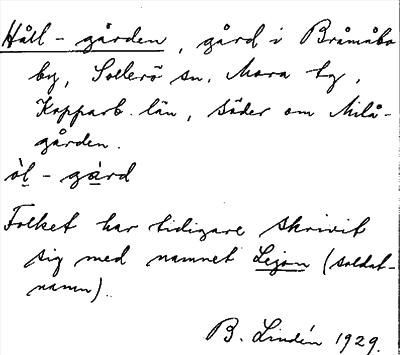 Håll-gården, gård i Bråmåbo
by, Sollerö sn, Mora tg,
Kopparb. län, söder om Milå-
gården.
òl-gàrd
Folket har tidigare skrivit
sig med namnet Lejon (soldat-
namn).
B. Lindén 1929.